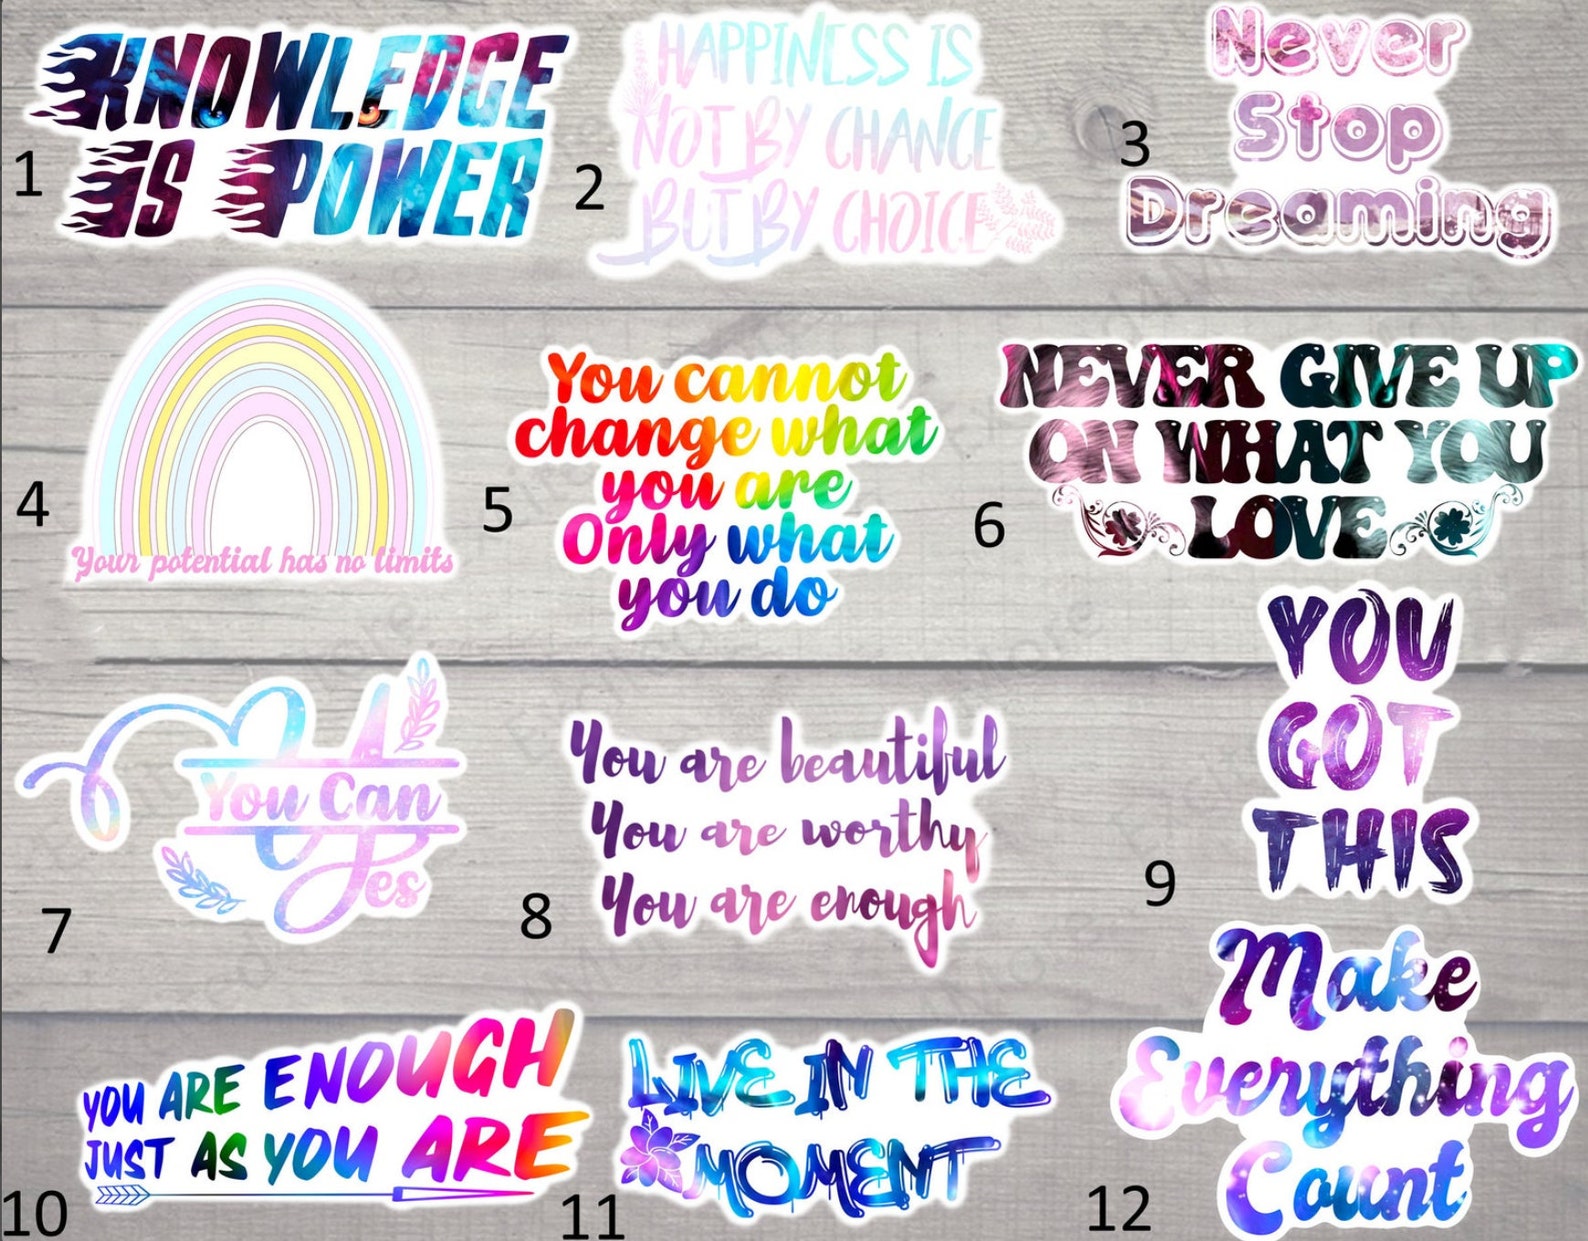 KNOWLEDGE
IS POWER
1
HAPPINESS IS
NOT BY CHANCE
BUT BY CHOICE
2
Never
Stop
Dreaming
3
4
Your potential has no limits
You cannot
change what
you are
Only what
you do
5
NEVER GIVE UP
ON WHAT YOU
LOVE
6
You Can
Yes
7
You are beautiful
You are worthy
You are enough
8
YOU
GOT
THIS
9
YOU ARE ENOUGH
JUST AS YOU ARE
10
LIVE IN THE
MOMENT
11
Make
Everything
Count
12